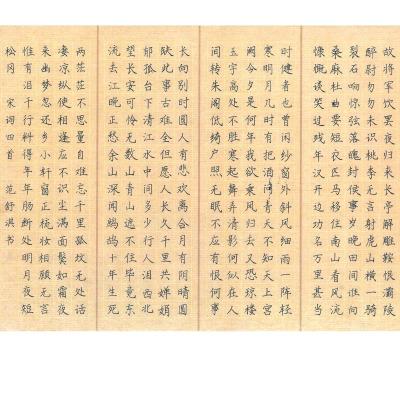 故将军饮罢夜归来长亭解雕鞍恨灞陵
醉尉匆匆未识桃李无言射虎山横一骑
裂石响惊弦落魄封侯事岁晚田间谁向
桑麻杜曲要短衣匹马移住南山看风流
慷慨谈笑过残年汉开边功名万里甚当
时健者也曾闲纱窗外斜风细雨一阵轻
寒明月几时有把酒问青天不知天上宫
阙今夕是何年我欲乘风归去又恐琼楼
玉宇高处不胜寒起舞弄清影何似在人
间转朱阁低绮户照无眠不应有恨何事
长向别时圆人有悲欢离合月有阴晴圆
缺此事古难全但愿人长久千里共婵娟
郁孤台下清江水中间多少行人泪西北
望长安可怜无数山青山遮不住毕竟东
流去江晚正愁余山深闻鹧鸪十年生死
两茫茫不思量自难忘千里孤坟无处话
凄凉纵使相逢应不识尘满面鬓如霜夜
来幽梦忽还乡小轩窗正梳妆相顾无言
惟有泪千行料得年年肠断处明月夜短
松冈 宋词四首 范舒淇书